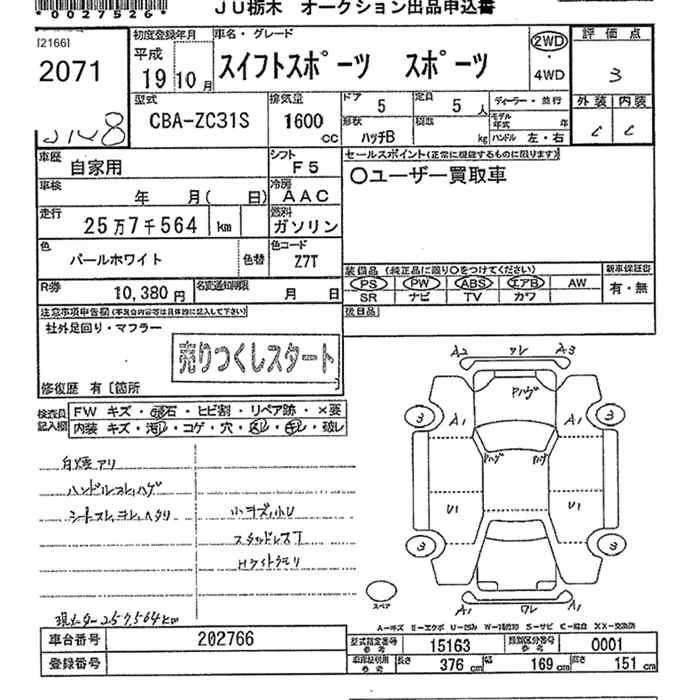 *0027526*
JU栃木 オークション出品申込書
[21661
2071
初度登録年月
平成
19年10月
車名・グレード
スイフトスポーツ スポーツ
2WD
・
4WD
評価点
3
外装 内装
C C
型式
CBA-ZC31S
排気量
1600
cc
ドア
5
定員
5人
形状
ハッチB
積載
kg
ディーラー・並行
モデル年式 年
ハンドル 左・右
車歴
自家用
シフト
F5
車検
年 月( 日)
冷房
AAC
走行
25万7千564 km
燃料
ガソリン
色
パールホワイト
色替
色コード
Z7T
R券
10,380円
名変通知期限
月 日
セールスポイント(正常に機能するものに限ります)
〇ユーザー買取車
装備品(純正品に限り〇をつけてください)
PS PW ABS エアB AW
SR ナビ TV カワ
新車保証書
有・無
後日品
注意事項申告欄(不具合内容等は具体的に記入して下さい)
社外足回り・マフラー
売りつくしスタート
修復歴 有〔箇所
検査員記入欄
FW キズ・飛石・ヒビ割・リペア跡・×要
内装 キズ・汚レ・コゲ・穴・スレ・キレ・破レ
ハンドルスレ,ハゲ
シートスレ,ヨレ,ヘタリ
小キズ,小U
スタッドレスT
Hライトクモリ
現メーター257,564km
A2 ワレ A3
Pハゲ
3 A1 A1 3
Pハゲ Pハゲ
U1 U1
3 3
A1 ワレ A1
スペア
A-キズ E-エクボ U-凹み W-補修跡 S-サビ C-腐食 XX-交換済
車台番号
202766
登録番号
型式指定番号
参考
15163
類別区分番号
参考
0001
車庫証明用
参考
長さ
376 cm
幅
169 cm
高さ
151 cm